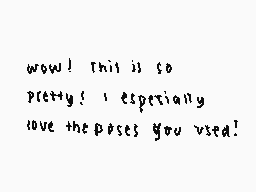 wow! This is so
pretty! i especially
love the poses you used!